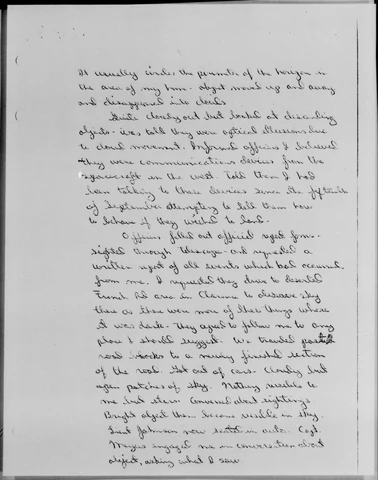 It usually circles the perimeter of the horizon in
the area of my home. Object moved up and away
and disappeared into clouds.
cloudy out but looked at descending
objects. Was told they were optical illusions due
to cloud movement. Informed officers I believed
they were communications devices from the
spacecraft in the west. Told them I had
been talking to these devices since the fifteenth
of September attempting to tell them how
to behave if they wished to land.
Officers filled out official report forms.
sighted through telescope and requested a
written report of all events which had occurred
from me. I requested they drive to deserted
French Rd area in Clarence to observe sky
there as there were more of these things where
it was dark. They agreed to follow me to any
place I should suggest. We traveled past
road blocks to a newly finished section
of the road. Got out of cars. Cloudy but
open patches of sky. Nothing visible to
me but stars. Conversed about sightings.
Bright object then became visible in sky.
Johnson now in auto. Capt.
engaged me in conversation about
object, asking what I saw.